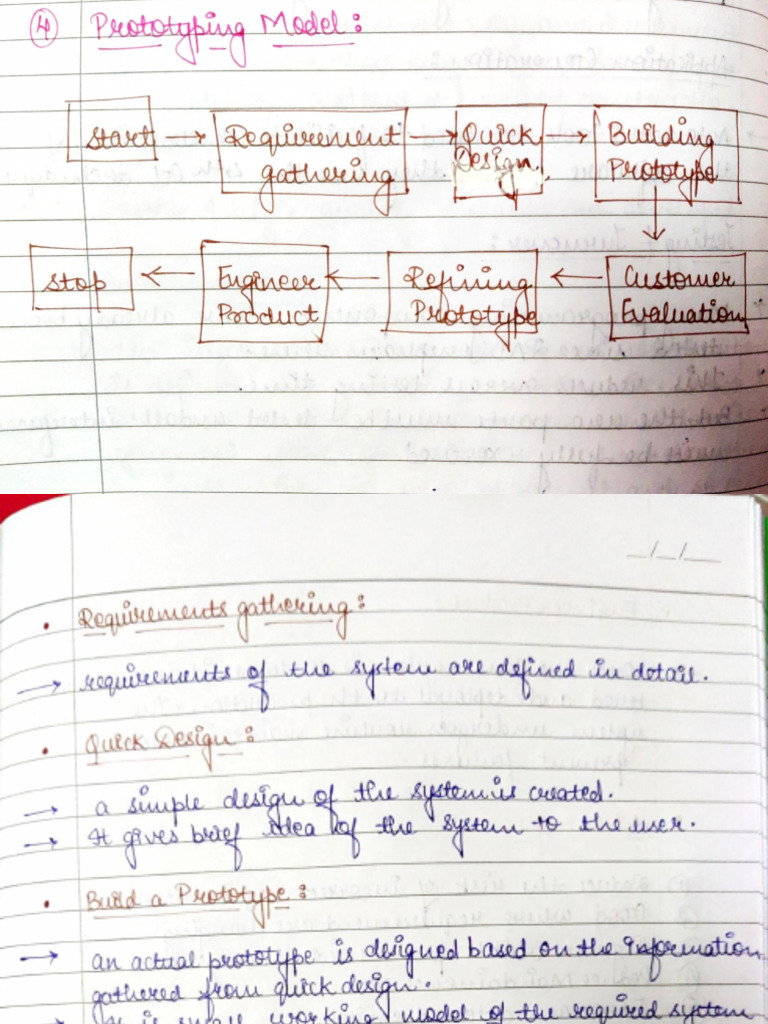 ④ Prototyping Model:
Start → Requirement gathering → Quick Design → Building Prototype
Stop ← Engineer Product ← Refining Prototype ← Customer Evaluation
_/_/_
• Requirements gathering:
→ requirements of the system are defined in detail.
• Quick Design:
→ a simple design of the system is created.
→ It gives brief idea of the system to the user.
• Build a Prototype:
→ an actual prototype is designed based on the information
gathered from quick design.
→ It is small working model of the required system